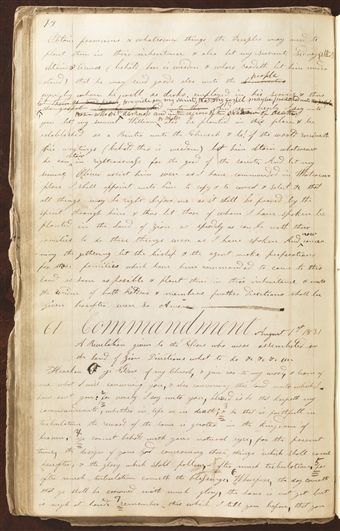 Obtain provisions & whatsoever things the Deciples may need to
plant them in their inheritance & also let my servent Sidney
obtain a licence (behold here is wisdom & whoso readeth let him under
stand) that he may send goods also unto the people
even by whom he will as clerks employed in his service & thus
provide for my saints that my Gospel may be preached unto
those who sit in darkness and in the region & shadow of death
& let my servent William in this place & be
established as a Printer unto the Church & lo if the world receiveth
his writings (behold this is wisdom) let him obtain whatsoever
he can obtain in righteousness for the good of the saints And let my
servent Oliver assist him even as I have commanded in Whatsoever
place I shall appoint unto him to copy & to correct & select &c that
all things may be right before me as it shall be proved by the
spirit through him & thus let those of whom I have spoken be
planted in the land of Zion as speedily as can be with their
families to do these things even as I have spoken And now concer
ning the gethering let the bishop & the agent make preparations
for families which have been commanded to come to this
land as soon as possable & plant them in their inheritance & unto
the residue of both Elders & members further directions shall be
given hereafter even so Amen
61 Commandment August 1st 1831
A Revelation given to the Elders who were assembled on
the land of Zion Directions what to do &c &c
Hearken O ye Elders of my Church & give ear to my word & learn of
me what I will concerning you & also concerning this land unto which I
have sent you for verely I say unto you blessed is he that keepeth my
commandments whether in life or in death & he that is faithfull in
tribulation the reward of the same is greater in the kingdom of
heaven ye cannot behold with your natural eyes for the present
time the design of your God concerning those things which shall come
hereafter & the glory which shall follow after much tribulation for
after much tribulation cometh the blessings Wherefore the day cometh
that ye shall be crowned with much glory the hour is not yet but
is nigh at hand remember this which I tell you before that you